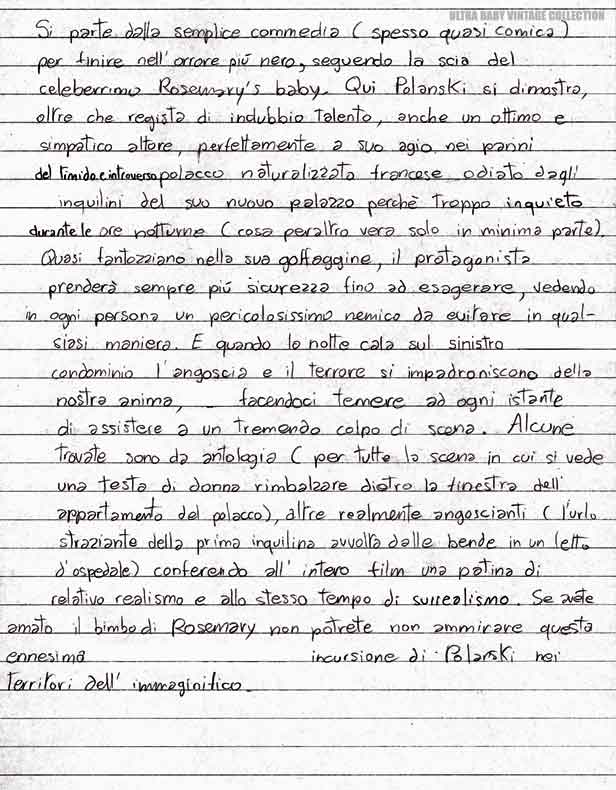 ULTRA BABY VINTAGE COLLECTION
Si parte dalla semplice commedia (spesso quasi comica)
per finire nell'orrore più nero, seguendo la scia del
celeberrimo Rosemary's baby. Qui Polanski si dimostra,
oltre che regista di indubbio talento, anche un ottimo e
simpatico attore, perfettamente a suo agio nei panni
del timido e introverso polacco naturalizzato francese odiato dagli
inquilini del suo nuovo palazzo perchè troppo inquieto
durante le ore notturne (cosa peraltro vera solo in minima parte).
Quasi fantozziano nella sua goffaggine, il protagonista
prenderà sempre più sicurezza fino ad esagerare, vedendo
in ogni persona un pericolosissimo nemico da evitare in qual-
siasi maniera. E quando la notte cala sul sinistro
condominio l'angoscia e il terrore si impadroniscono della
nostra anima, facendoci temere ad ogni istante
di assistere a un tremendo colpo di scena. Alcune
trovate sono da antologia (per tutte la scena in cui si vede
una testa di donna rimbalzare dietro la finestra dell'
appartamento del polacco), altre realmente angoscianti (l'urlo
straziante della prima inquilina avvolta dalle bende in un letto
d'ospedale) conferendo all'intero film una patina di
relativo realismo e allo stesso tempo di surrealismo. Se avete
amato il bimbo di Rosemary non potrete non ammirare questa
ennesima incursione di Polanski nei
territori dell'immaginifico.